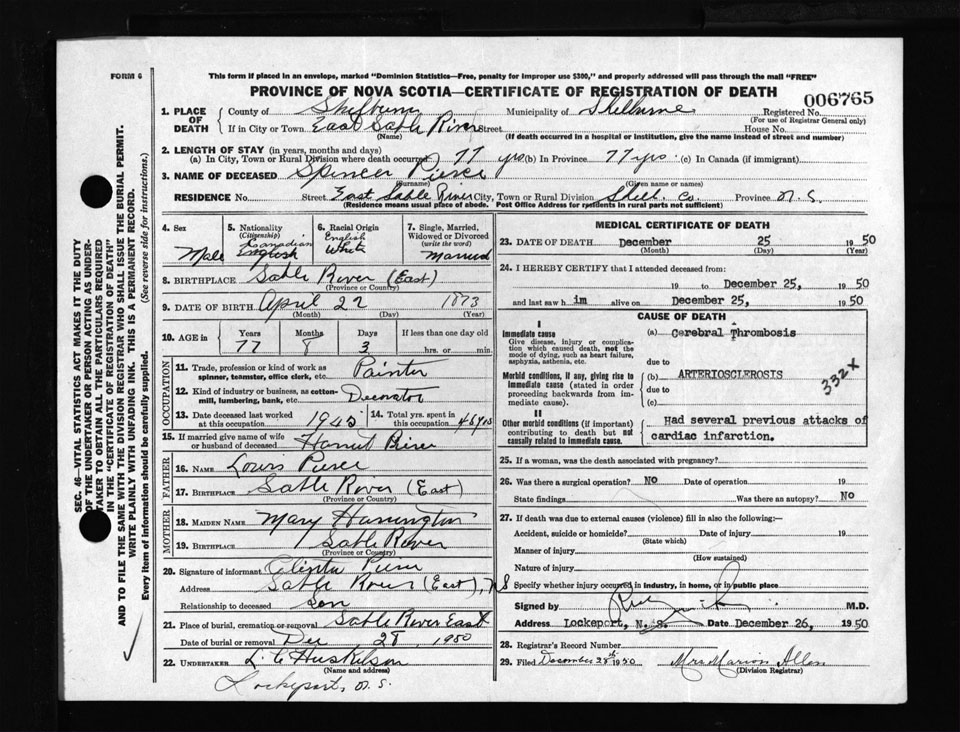 FORM 6
This form if placed in an envelope, marked "Dominion Statistics—Free, penalty for improper use $300," and properly addressed will pass through the mail "FREE"
PROVINCE OF NOVA SCOTIA—CERTIFICATE OF REGISTRATION OF DEATH
006765
1. PLACE OF DEATH
County of Shelburne Municipality of Shelburne Registered No.
(For use of Registrar General only)
If in City or Town East Sable River Street House No.
(Name) (If death occurred in a hospital or institution, give the name instead of street and number)
2. LENGTH OF STAY (in years, months and days)
(a) In City, Town or Rural Division where death occurred 77 yrs (b) In Province 77 yrs. (c) In Canada (if immigrant)
3. NAME OF DECEASED Spincer Pierce
(Surname) (Given name or names)
RESIDENCE No. Street East Sable River City, Town or Rural Division Shel. Co. Province N. S.
(Residence means usual place of abode. Post Office Address for residents in rural parts not sufficient)
4. Sex
Male
5. Nationality
(Citizenship)
Canadian
English
6. Racial Origin
English
White
7. Single, Married, Widowed or Divorced
(write the word)
Married
8. BIRTHPLACE Sable River (East)
(Province or Country)
9. DATE OF BIRTH April 22 1873
(Month) (Day) (Year)
10. AGE in
Years Months Days If less than one day old
77 8 3 hrs. or min.
OCCUPATION
11. Trade, profession or kind of work as spinner, teamster, office clerk, etc. Painter
12. Kind of industry or business, as cotton-mill, lumbering, bank, etc. Decorator
13. Date deceased last worked at this occupation 1945
14. Total yrs. spent in this occupation 46 yrs
15. If married give name of wife or husband of deceased
FATHER
16. NAME Louis Pierce
17. BIRTHPLACE Sable River (East)
(Province or Country)
MOTHER
18. MAIDEN NAME Mary Harrington
19. BIRTHPLACE Sable River
(Province or Country)
20. Signature of informant
Address Sable River (East), N S
Relationship to deceased son
21. Place of burial, cremation or removal Sable River East
Date of burial or removal Dec 28, 1950
22. UNDERTAKER L. C Huskilson
(Name and address)
Lockeport, N. S.
MEDICAL CERTIFICATE OF DEATH
23. DATE OF DEATH December 25 1950
(Month) (Day) (Year)
24. I HEREBY CERTIFY that I attended deceased from:
19 to December 25, 1950
and last saw h im alive on December 25, 1950
CAUSE OF DEATH
I
Immediate cause
Give disease, injury or complication which caused death, not the mode of dying, such as heart failure, asphyxia, asthenia, etc.
(a) Cerebral Thrombosis
due to
Morbid conditions, if any, giving rise to immediate cause (stated in order proceeding backwards from immediate cause).
(b) ARTERIOSCLEROSIS
due to
(c)
332X
II
Other morbid conditions (if important) contributing to death but not causally related to immediate cause.
Had several previous attacks of
cardiac infarction.
25. If a woman, was the death associated with pregnancy?
26. Was there a surgical operation? NO Date of operation 19
State findings Was there an autopsy? No
27. If death was due to external causes (violence) fill in also the following:—
Accident, suicide or homicide? Date of injury 19
(State which)
Manner of injury
(How sustained)
Nature of injury
Specify whether injury occured in industry, in home, or in public place
Signed by M.D.
Address Lockeport, N. S. Date December 26, 1950
28. Registrar's Record Number
29. Filed December 28th 1950 Mrs Marion Allen
(Division Registrar)
SEC. 46—VITAL STATISTICS ACT MAKES IT THE DUTY
OF THE UNDERTAKER OR PERSON ACTING AS UNDER-
TAKER TO OBTAIN ALL THE PARTICULARS REQUIRED
IN THE "CERTIFICATE OF REGISTRATION OF DEATH"
AND TO FILE THE SAME WITH THE DIVISION REGISTRAR WHO SHALL ISSUE THE BURIAL PERMIT.
WRITE PLAINLY WITH UNFADING INK. THIS IS A PERMANENT RECORD.
Every item of information should be carefully supplied. (See reverse side for instructions.)